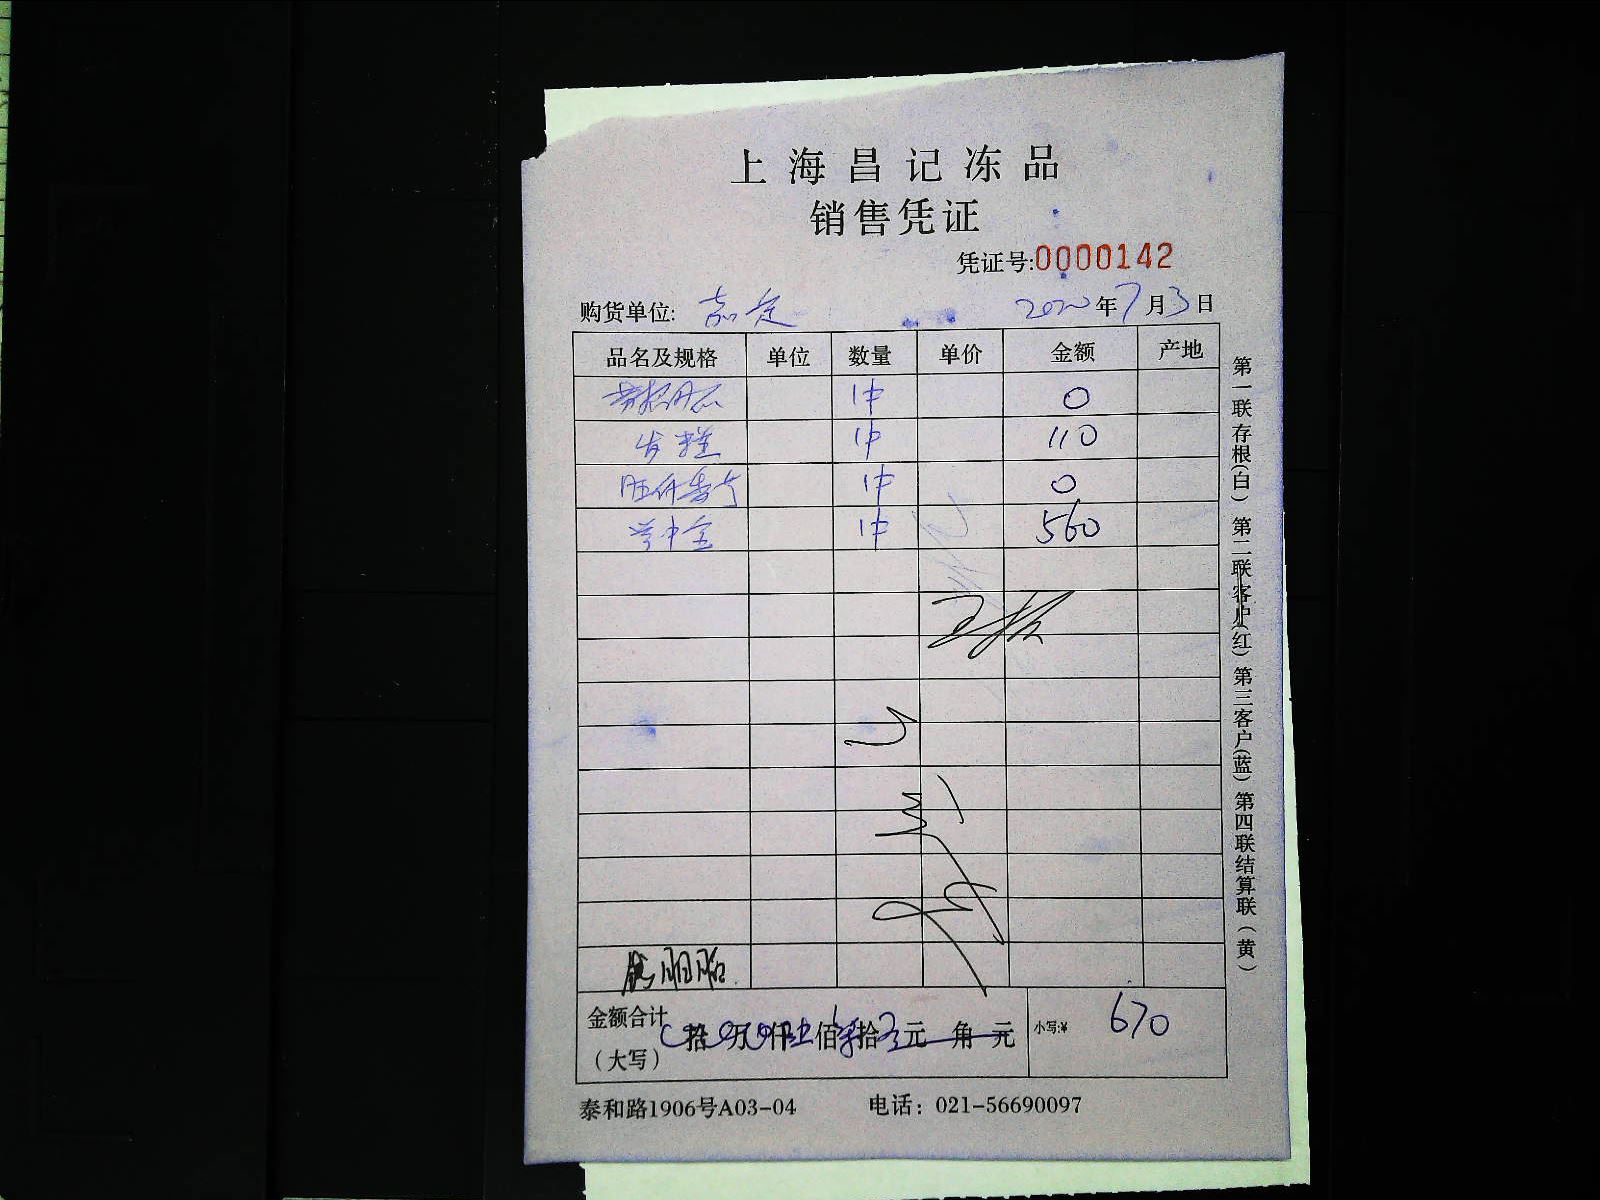 上海昌记冻品
销售凭证
凭证号:0000142
购货单位: 嘉定 2020年7月3日
品名及规格 单位 数量 单价 金额 产地
1件 0
发糕 1件 110
1件 0
1件 560
金额合计 拾 万 仟 佰 拾 元 角 元 小写:¥ 670
(大写)
泰和路1906号A03-04 电话: 021-56690097
第一联存根(白) 第二联客户(红) 第三客户(蓝) 第四联结算联(黄)